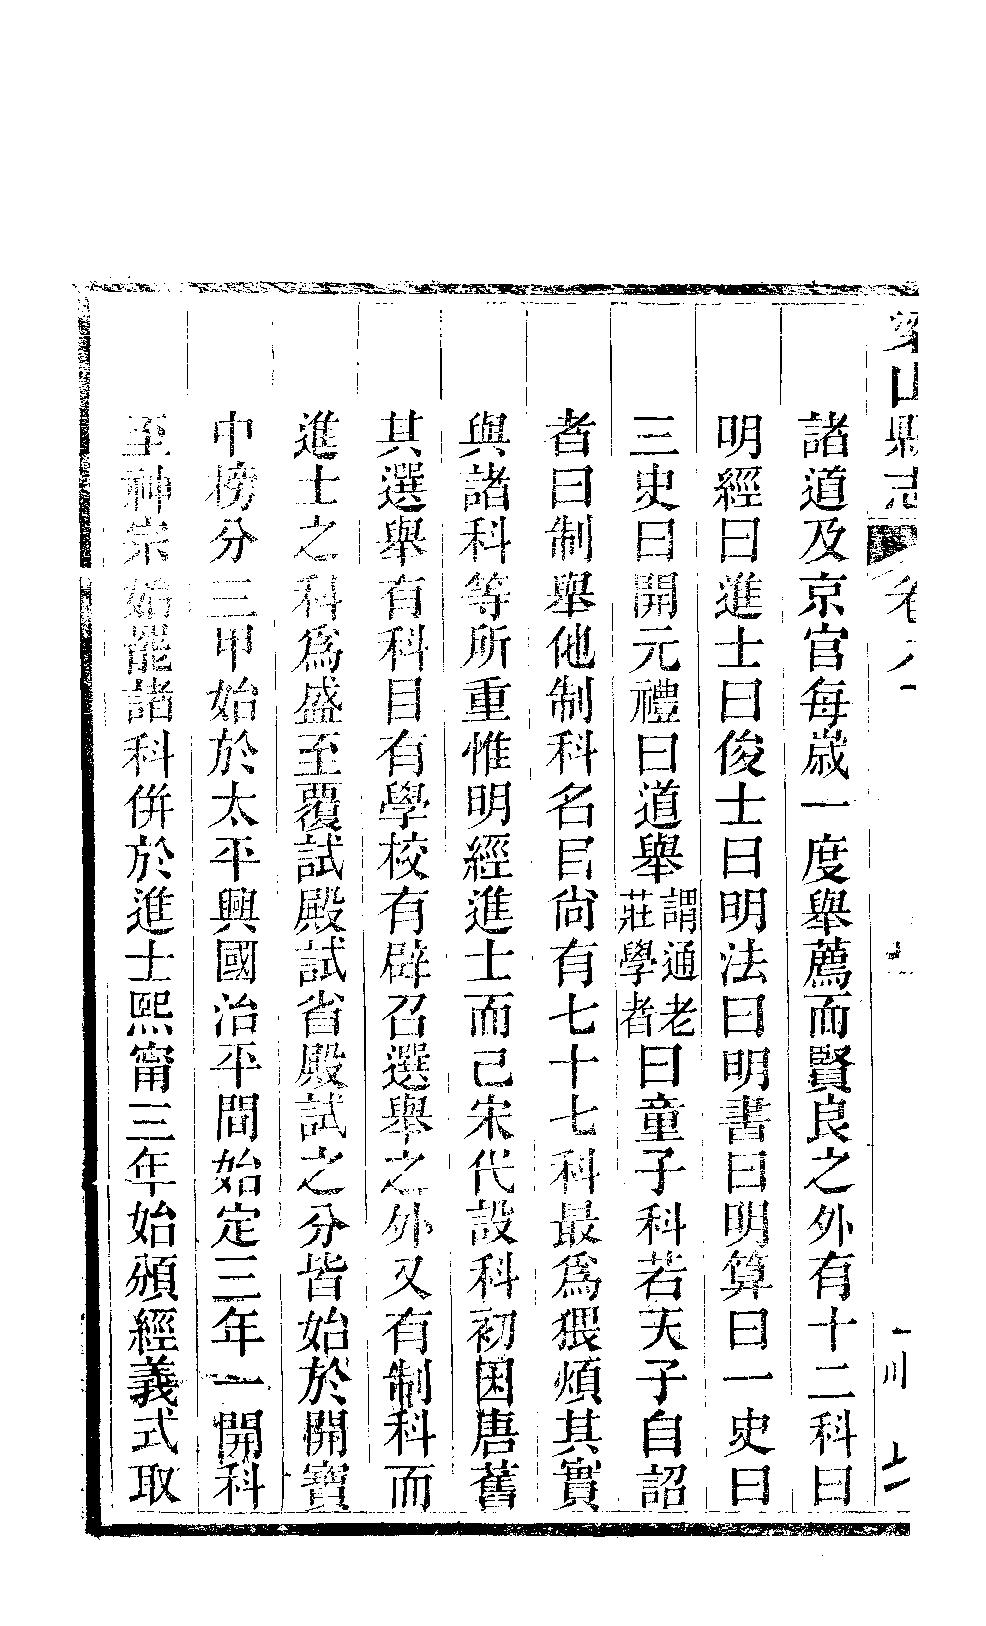 山縣志
諸道及京官每歲一度舉薦而賢良之外有十二科曰
明經曰進士曰俊士曰明法曰明書曰明算曰一史曰
三史曰開元禮曰道舉謂通老莊學者曰童子科若天子自詔
者曰制舉他制科名目尙有七十七科最爲猥煩其實
與諸科等所重惟明經進士而己宋代設科初因唐舊
其選舉有科目有學校有辟召選舉之外又有制科而
進士之科爲盛至覆試殿試省殿試之分皆始於開寶
中榜分三甲始於太平興國治平間始定三年一開科
至神宗始罷諸科併於進士熙甯三年始頒經義式取